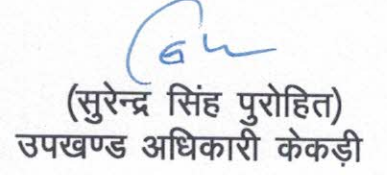 (सुरेन्द्र सिंह पुरोहित)
उपखण्ड अधिकारी केकड़ी